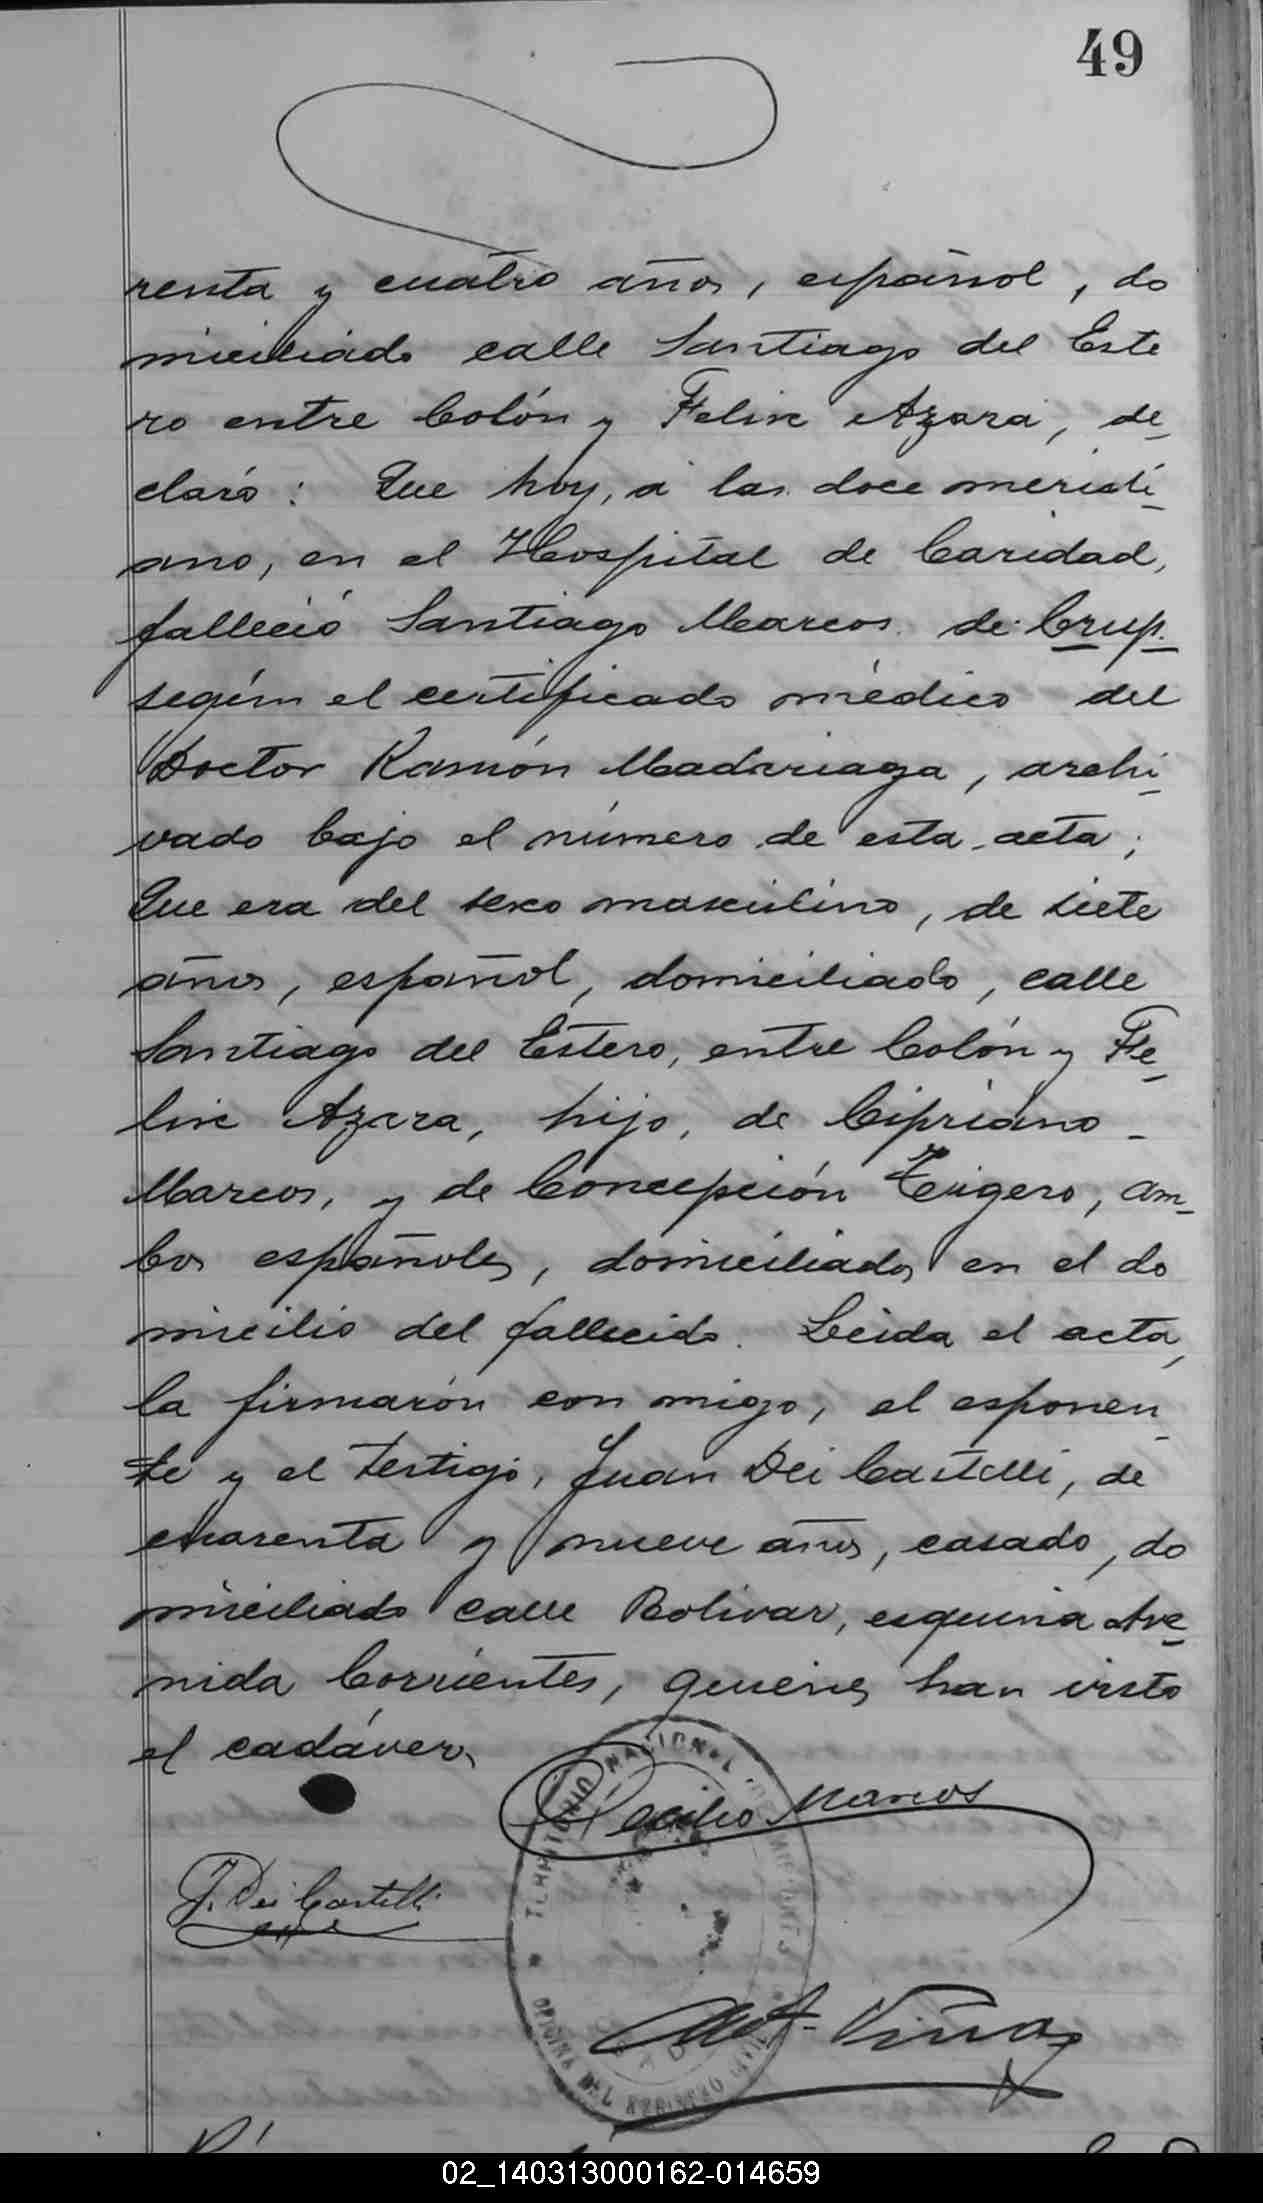 49
renta y cuatro años, español, do
miciliado calle Santiago del Este
ro entre Colón y Felix Azara, de_
claró: Que hoy, a las doce meridi_
ano, en el Hospital de Caridad,
falleció Santiago Marcos de Crup.
según el certificado médico del
Doctor Ramón Madariaga, archi_
vado bajo el número de esta acta;
Que era del sexo masculino, de siete
años, español, domiciliado, calle
Santiago del Estero, entre Colón y Fe_
lix Azara, hijo, de Cipriano _
Marcos, y de Concepción Trigero, am_
bos españoles, domiciliados en el do
micilio del fallecido. Leida el acta,
la firmarón con migo, el esponen_
te y el testigo, Juan Dei Castelli, de
cuarenta y nueve años, casado, do
miciliado calle Bolivar, esquina Ave_
nida Corrientes, quienes han visto
el cadáver.
TERRITORIO NACIONAL DE MISIONES
Marcos
J. Dei Castelli
Viñas
OFICINA DEL REGISTRO CIVIL
02_140313000162-014659